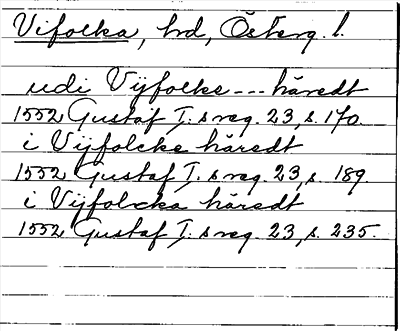 Vifolka, hd, Österg. l.
udi Vijfolke --- häredt
1552 Gustaf I. s reg. 23, s. 170.
i Vijfolcke häredt
1552 Gustaf I. s reg. 23, s. 189.
i Vijfolcka häredt
1552 Gustaf I. s reg. 23, s. 235.